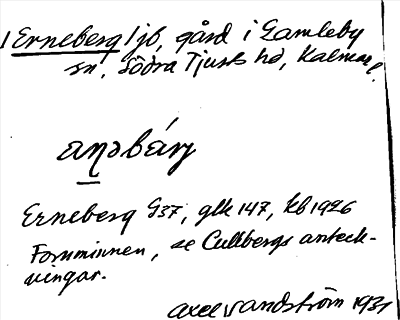 Erneberg 1 jb, gård i Gamleby
sn, Södra Tjusts hd, Kalmar l.
Erneberg G37, glk 147, kb 1926
Fornminnen, se Cullbergs anteck-
ningar.
Axel Vandström 1931